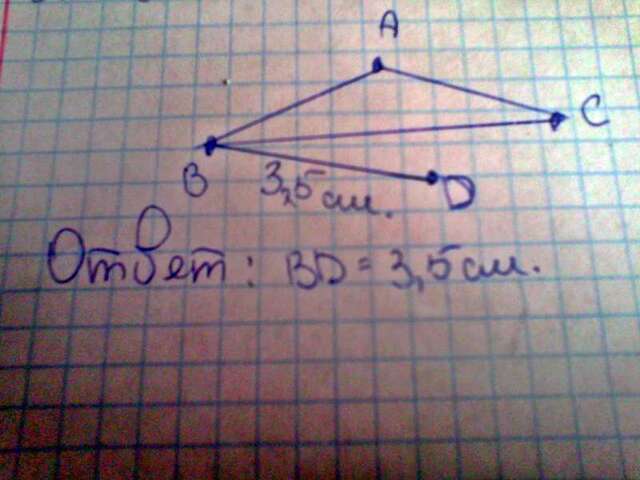 A
C
B 3,5 см. D
Ответ: BD = 3,5 см.